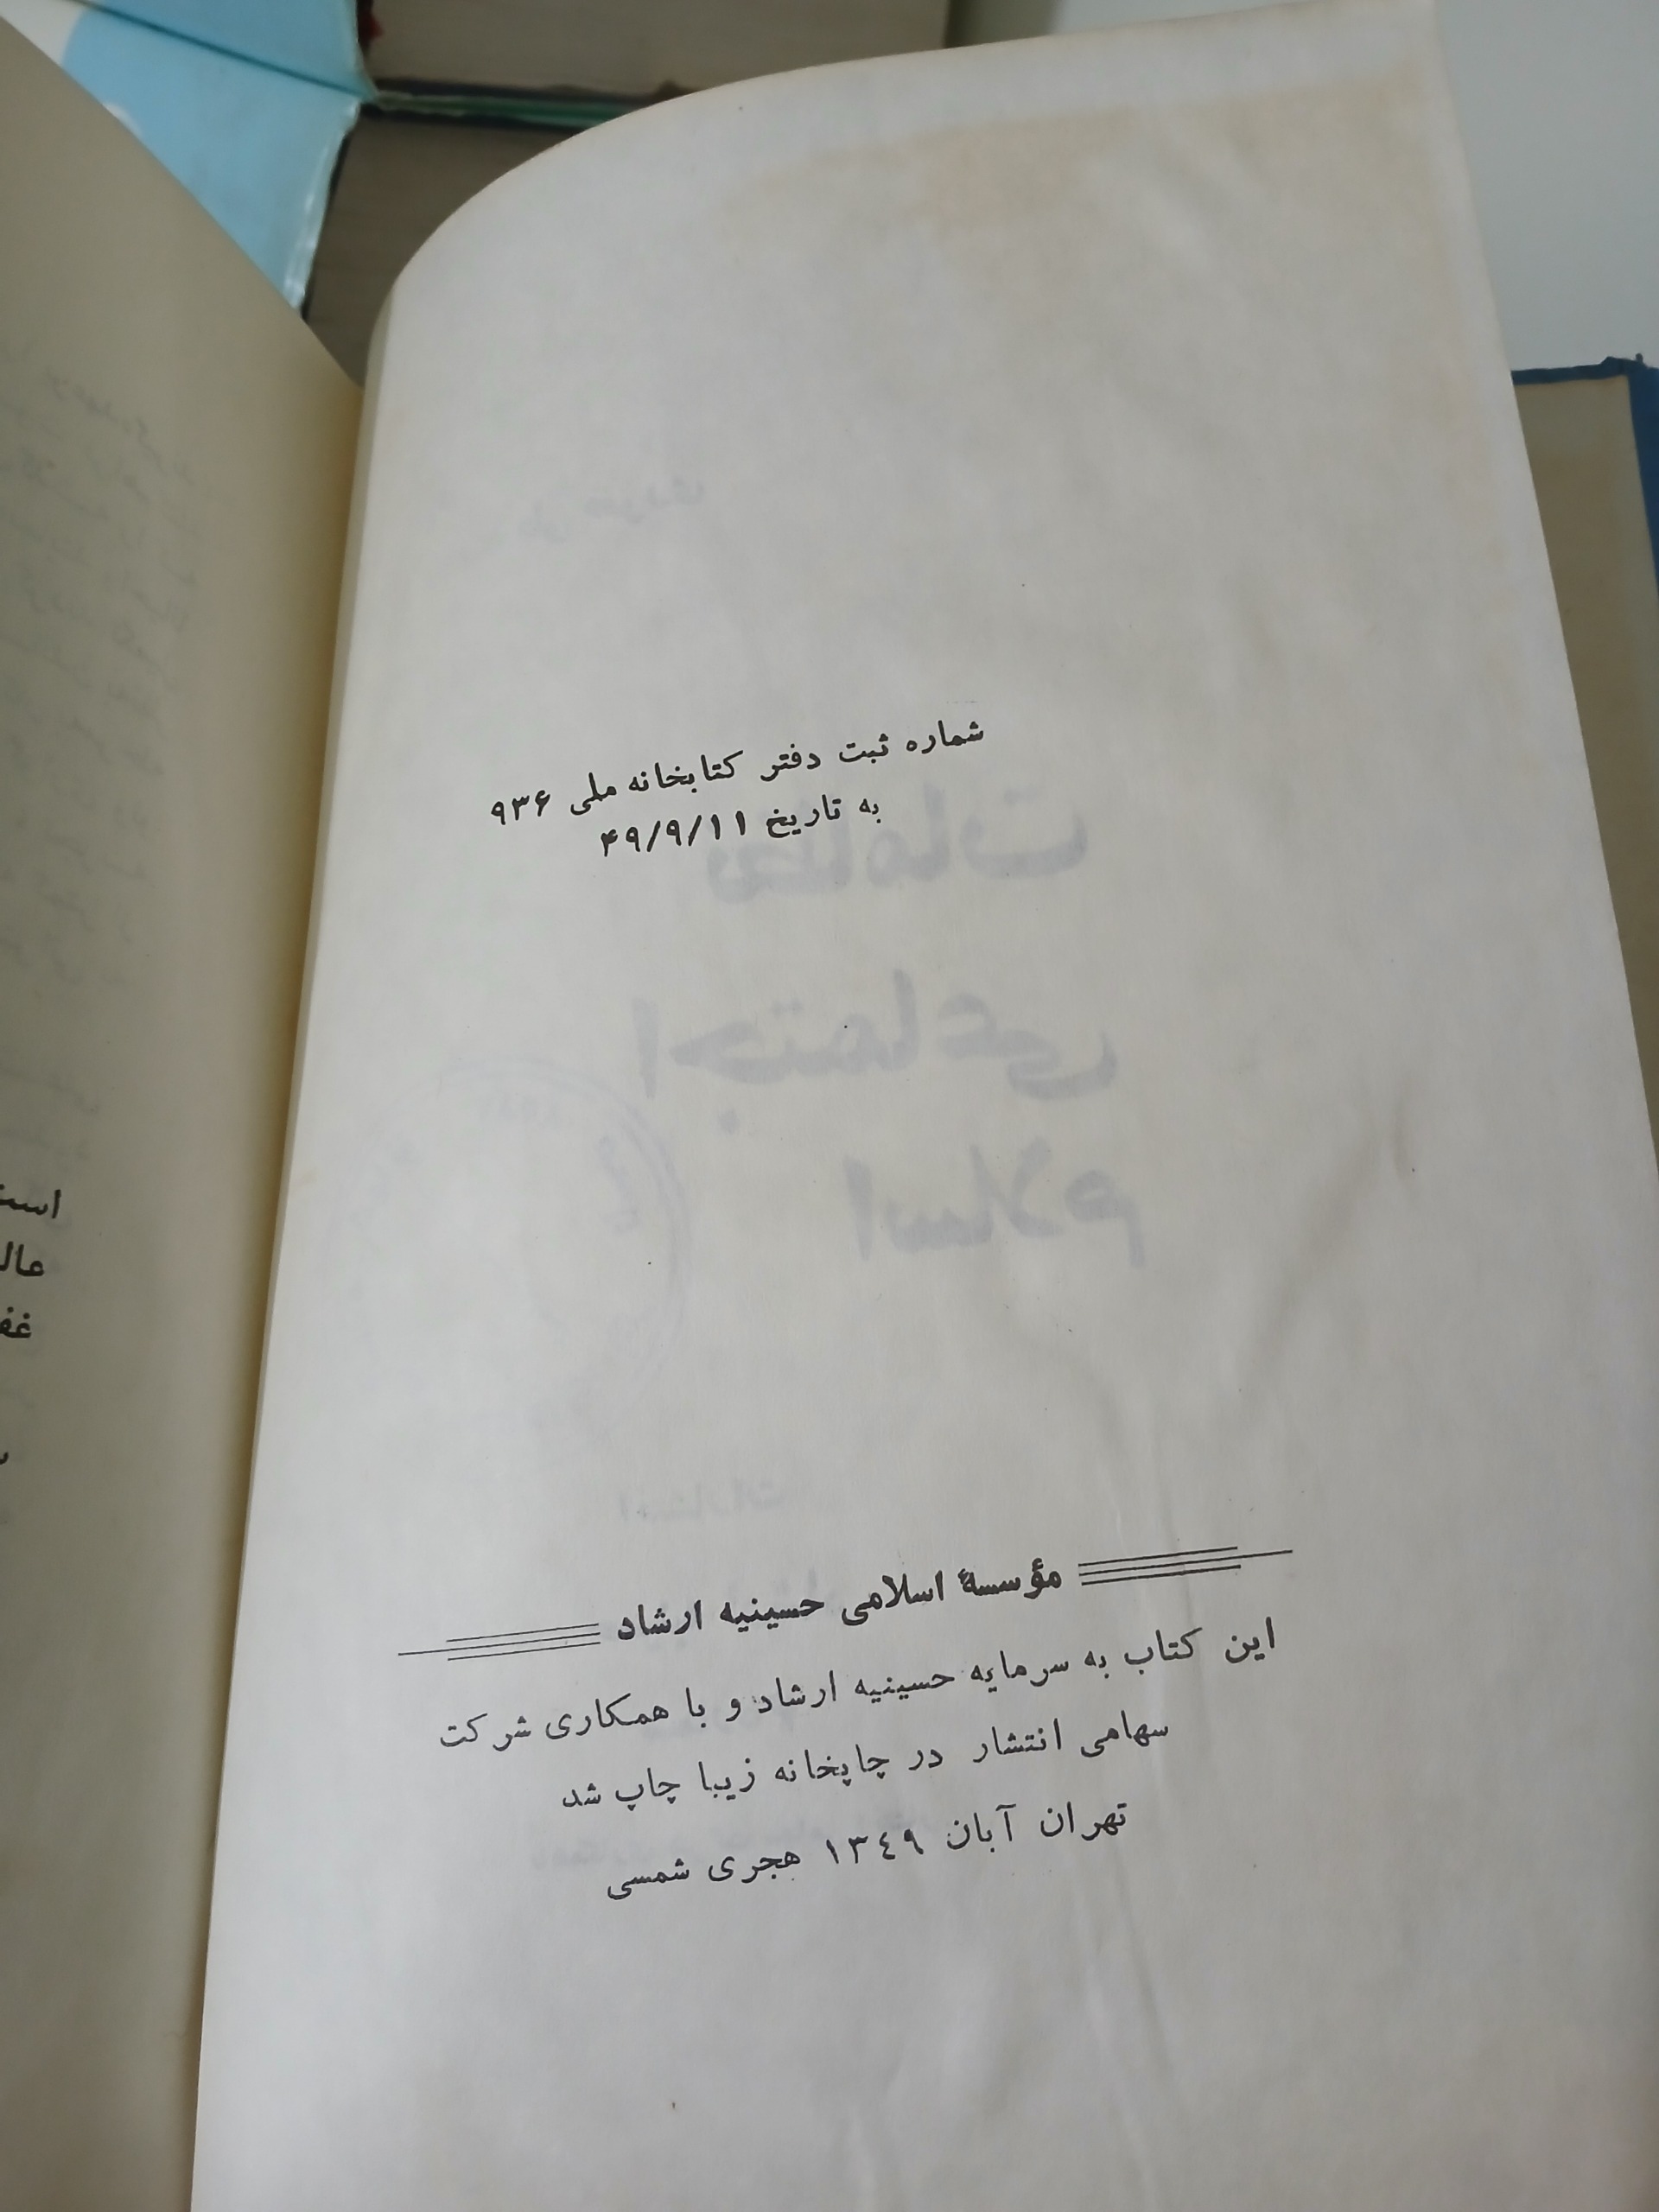 شماره ثبت دفتر کتابخانه ملی ۹۳۶
به تاریخ ۴۹/۹/۱۱
اجتماعی
اسلام
مؤسسهٔ اسلامی حسینیه ارشاد
این کتاب به سرمایه حسینیه ارشاد و با همکاری شرکت
سهامی انتشار در چاپخانه زیبا چاپ شد
تهران آبان ۱۳٤۹ هجری شمسی